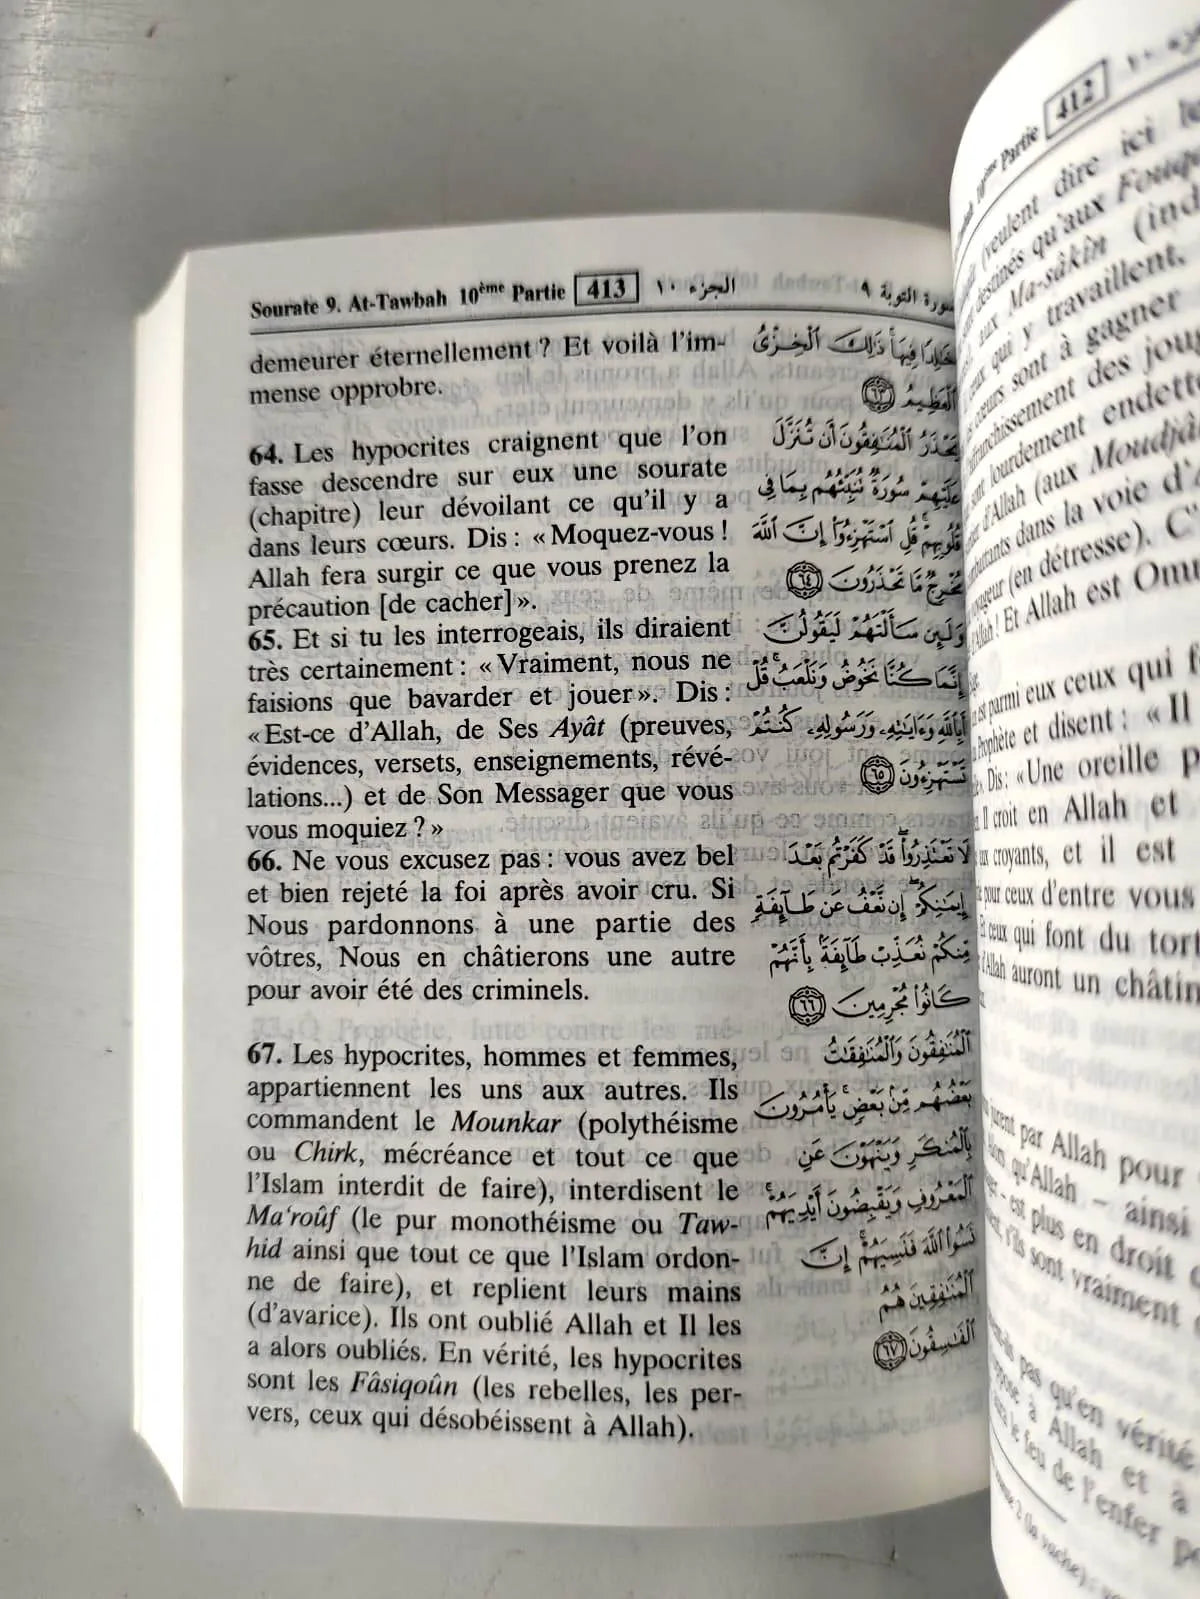 Sourate 9. At-Tawbah 10ème Partie 413 الجزء ١٠ سورة التوبة ٩
demeurer éternellement ? Et voilà l'im-
mense opprobre.
64. Les hypocrites craignent que l'on
fasse descendre sur eux une sourate
(chapitre) leur dévoilant ce qu'il y a
dans leurs cœurs. Dis : « Moquez-vous !
Allah fera surgir ce que vous prenez la
précaution [de cacher] ».
65. Et si tu les interrogeais, ils diraient
très certainement : « Vraiment, nous ne
faisions que bavarder et jouer ». Dis :
« Est-ce d'Allah, de Ses Ayât (preuves,
évidences, versets, enseignements, révé-
lations...) et de Son Messager que vous
vous moquiez ? »
66. Ne vous excusez pas : vous avez bel
et bien rejeté la foi après avoir cru. Si
Nous pardonnons à une partie des
vôtres, Nous en châtierons une autre
pour avoir été des criminels.
67. Les hypocrites, hommes et femmes,
appartiennent les uns aux autres. Ils
commandent le Mounkar (polythéisme
ou Chirk, mécréance et tout ce que
l'Islam interdit de faire), interdisent le
Ma'roûf (le pur monothéisme ou Taw-
hid ainsi que tout ce que l'Islam ordon-
ne de faire), et replient leurs mains
(d'avarice). Ils ont oublié Allah et Il les
a alors oubliés. En vérité, les hypocrites
sont les Fâsiqoûn (les rebelles, les per-
vers, ceux qui désobéissent à Allah).
خَٰلِدًا فِيهَا ذَٰلِكَ ٱلْخِزْىُ
ٱلْعَظِيمُ ٦٣
يَحْذَرُ ٱلْمُنَٰفِقُونَ أَن تُنَزَّلَ
عَلَيْهِمْ سُورَةٌ تُنَبِّئُهُم بِمَا فِى
قُلُوبِهِمْ قُلِ ٱسْتَهْزِءُوٓا۟ إِنَّ ٱللَّهَ
مُخْرِجٌ مَّا تَحْذَرُونَ ٦٤
وَلَئِن سَأَلْتَهُمْ لَيَقُولُنَّ
إِنَّمَا كُنَّا نَخُوضُ وَنَلْعَبُ قُلْ
أَبِٱللَّهِ وَءَايَٰتِهِۦ وَرَسُولِهِۦ كُنتُمْ
تَسْتَهْزِءُونَ ٦٥
لَا تَعْتَذِرُوا۟ قَدْ كَفَرْتُم بَعْدَ
إِيمَٰنِكُمْ إِن نَّعْفُ عَن طَآئِفَةٍ
مِّنكُمْ نُعَذِّبْ طَآئِفَةًۢ بِأَنَّهُمْ
كَانُوا۟ مُجْرِمِينَ ٦٦
ٱلْمُنَٰفِقُونَ وَٱلْمُنَٰفِقَٰتُ
بَعْضُهُم مِّنۢ بَعْضٍ يَأْمُرُونَ
بِٱلْمُنكَرِ وَيَنْهَوْنَ عَنِ
ٱلْمَعْرُوفِ وَيَقْبِضُونَ أَيْدِيَهُمْ
نَسُوا۟ ٱللَّهَ فَنَسِيَهُمْ إِنَّ
ٱلْمُنَٰفِقِينَ هُمُ
ٱلْفَٰسِقُونَ ٦٧
10ème Partie 412
(veulent dire ici
destinés qu'aux
aux Ma-sâkîn
ceux qui y travaillent,
cœurs sont à gagner
franchissement des
sont lourdement
d'Allah (aux
dans la voie
(en détresse).
Et Allah est
parmi eux ceux qui
Prophète et disent : « Il
Dis : « Une oreille
Il croit en Allah et
croyants, et il est
pour ceux d'entre vous
ceux qui font du
d'Allah auront un
par Allah pour
qu'Allah – ainsi
est plus en droit
s'ils sont vraiment
pas qu'en vérité
à Allah et à
le feu de l'enfer
2 (la vache) :